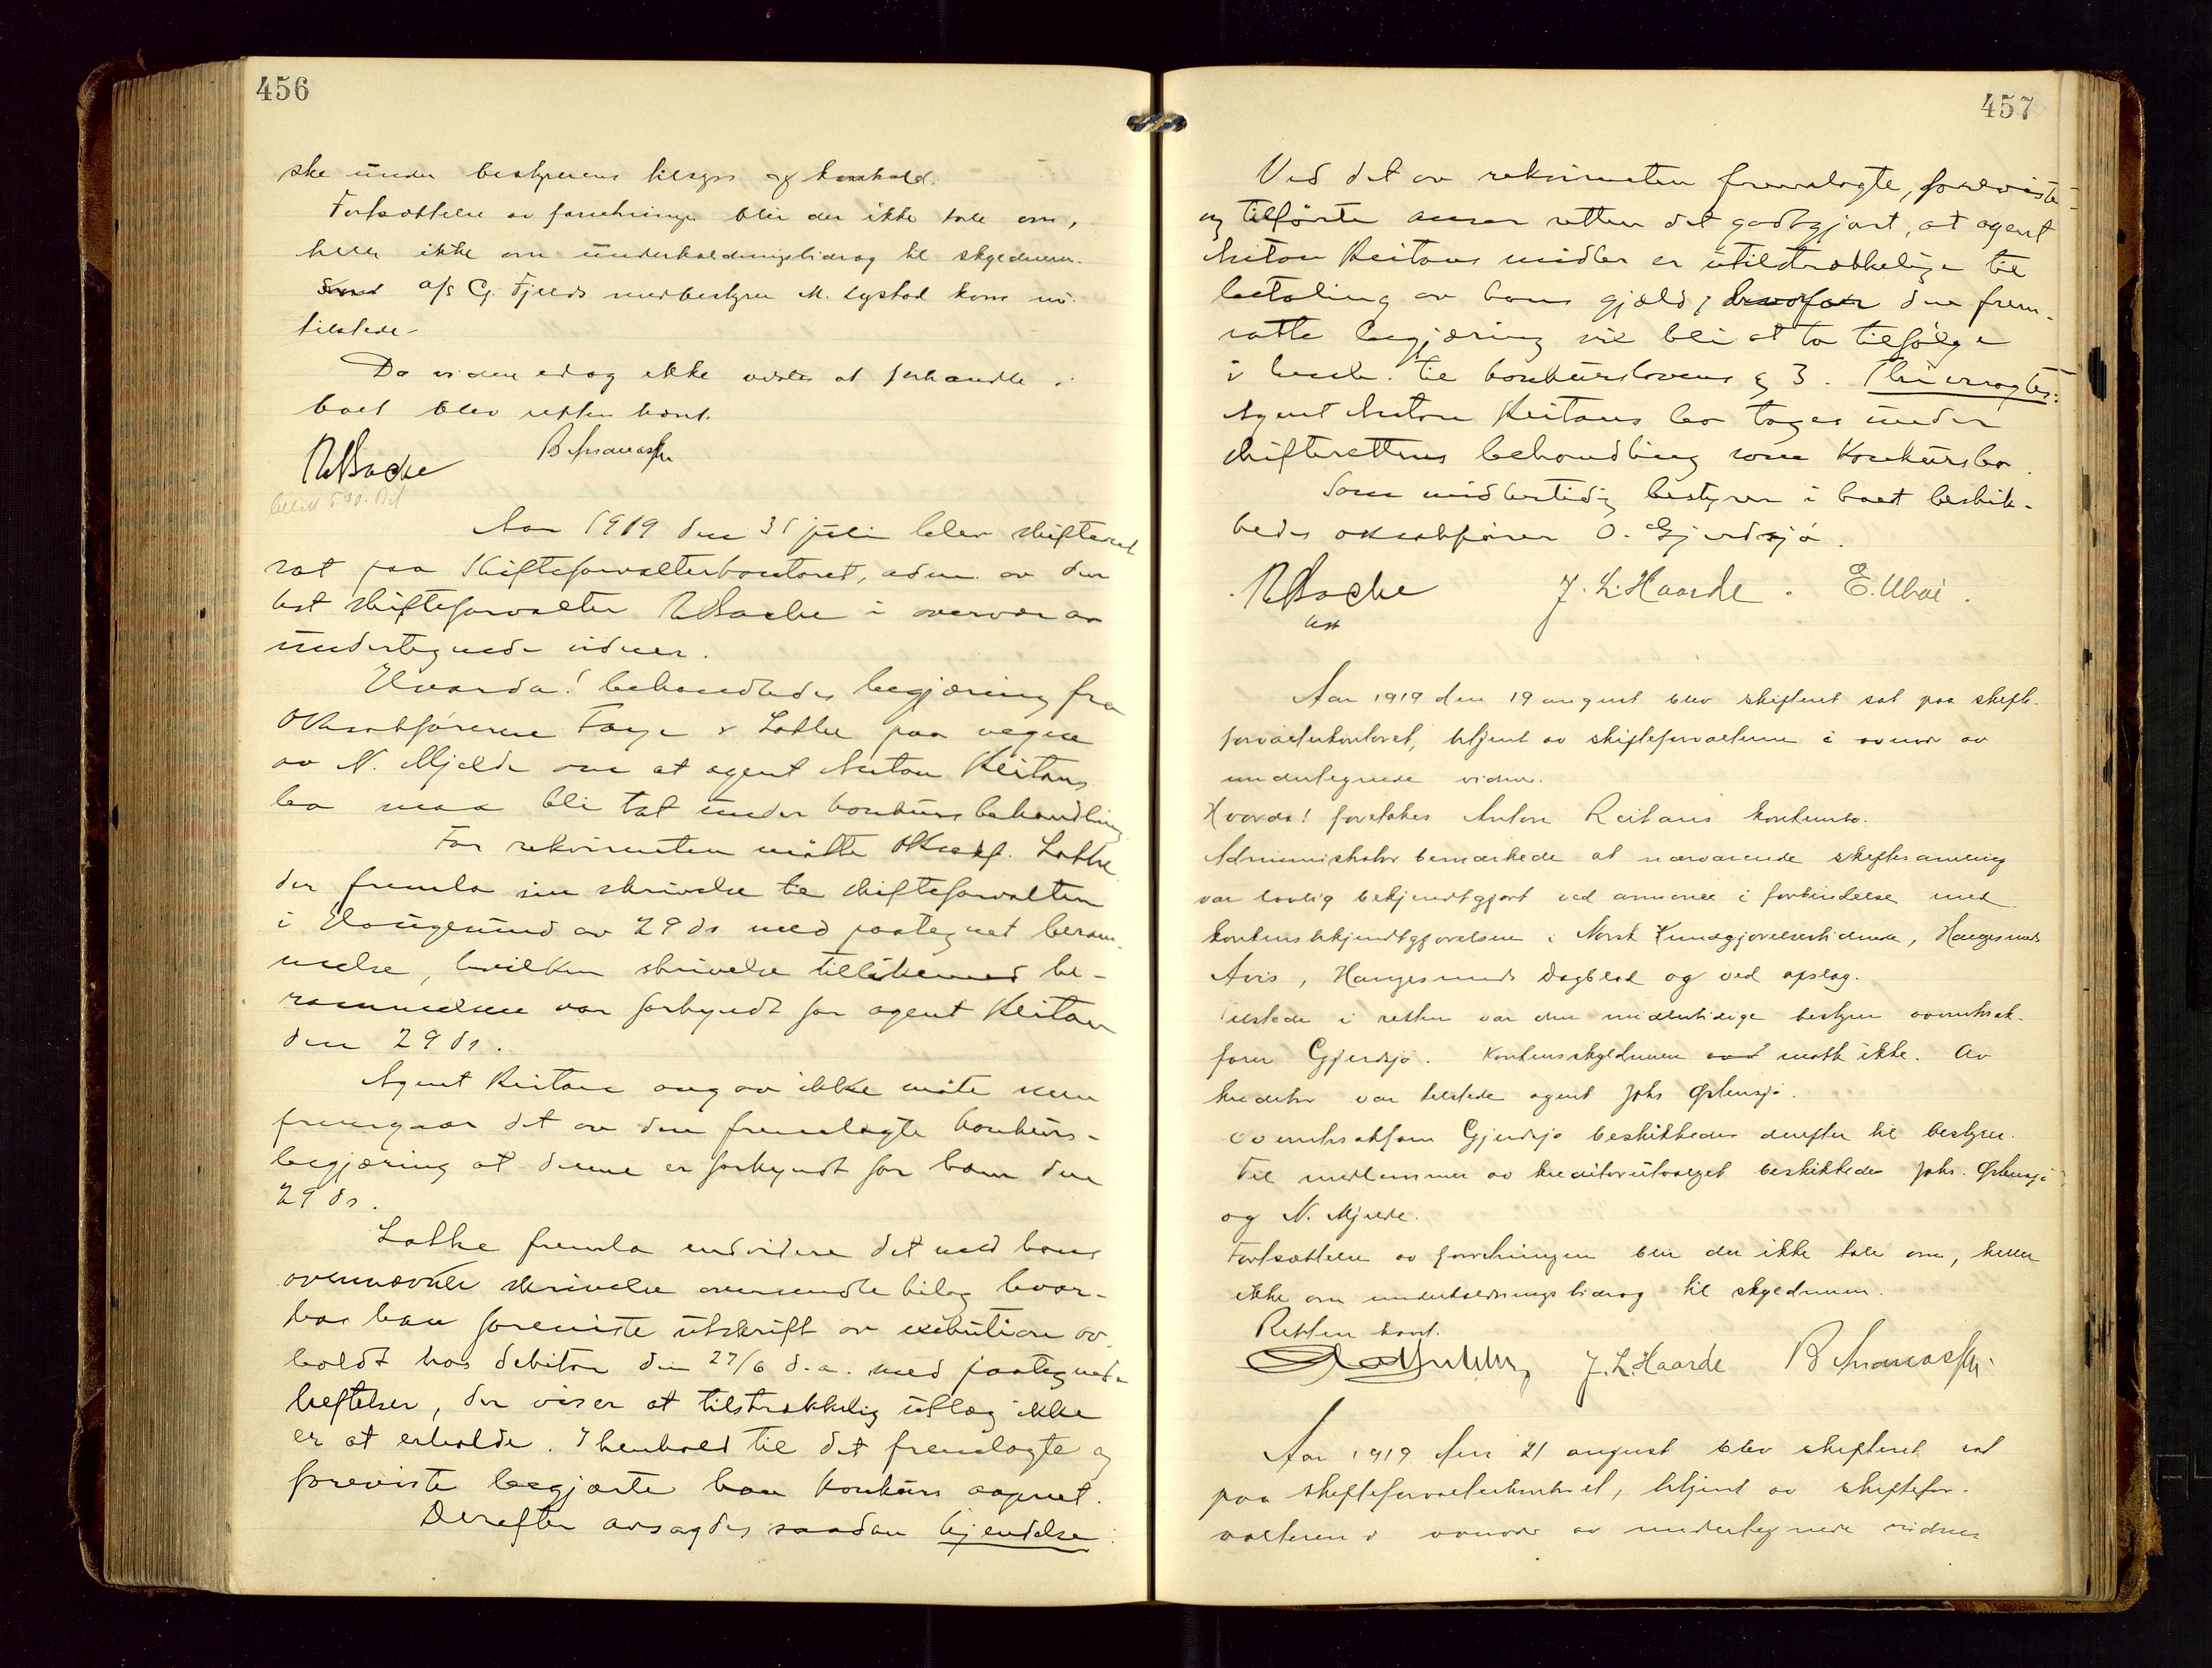 456
ske under bestyrerens tilsyn og kontrol.
Fortsættelse av forretningen blir der ikke tale om,
heller ikke om underholdningsbidrag til skyldneren.
A/S G. Fjelds medbestyrer M. Lystad kom nu
tilstede.
Da videre idag ikke vistes at forhandle i
boet blev retten hævt.
N Backe
Aar 1919 den 31 juli blev skifteret
sat paa skifteforvalterkontoret, adm. av den
kst skifteforvalter N Backe i overvær av
undertegnede vidner.
Hvorda! behandledes begjæring fra
O R sakførerne Faye & Lothe paa vegne
av N. Mjelde om at agent Anton Reitans
bo maa bli tat under konkursbehandling
For rekvirenten møtte ORsakf. Lothe
der fremla sin skrivelse til skifteforvalteren
i Haugesund av 29 ds med paategnet beram-
melse, hvilken skrivelse tillikemed be-
rammelsen var forkyndt for agent Reitan
den 29 ds.
Agent Reitan angav ikke møte men
fremgaar det av den fremlagte konkurs-
begjæring at denne er forkyndt for ham den
29 ds.
Lothe fremla endvidere det med hans
ovennævnte skrivelse oversendte bilag hvor-
hos han foreviste utskrift av exekution av-
holdt hos debitor den 27/6 d.a. med paategnede
heftelser, der viser at tilstrækkelig utlæg ikke
er at erholde. I henhold til det fremlagte og
foreviste begjærte han konkurs aapnet.
Derefter avsagdes saadan kjendelse:
457
Ved det av rekvirenten fremlagte, foreviste
og tilførte anser retten det godtgjort, at agent
Anton Reitans midler er utilstrækkelige til
betaling av hans gjæld, hvorfor den frem-
satte begjæring vil bli at ta tilfølge
i henh. til konkurslovens § 3. Thi eragtes:
Agent Anton Reitans bo tages under
skifterettens behandling som konkursbo.
Som midlertidig bestyrer i boet beskik-
kedes oksakfører O. Gjerdsjø.
N Backe J. L. Haarde. E. Ubøe.
kst
Aar 1919 den 19 august blev skifteret sat paa skifte-
forvalterkontoret, betjent av skifteforvalteren i overvær av
undertegnede vidner.
Hvorda! foretokes Anton Reitans konkursbo.
Administrator bemærkede at nærværende skiftesamling
var lovlig bekjendtgjort ved annonce i forbindelse med
konkursbekjendtgjørelsen i Norsk Kundgjørelsestidende, Haugesunds
Avis, Haugesunds Dagblad og ved opslag.
Tilstede i retten var den midlertidige bestyrer overretssak-
fører Gjerdsjø. Konkursskyldneren møtte ikke. Av
kreditor var tilstede agent Johs Østensjø.
Overretssakfører Gjerdsjø beskikkedes derefter til bestyrer.
Til medlemmer av kreditorutvalget beskikkedes Johs. Østensjø
og N. Mjelde.
Fortsættelse av forretningen blir der ikke tale om, heller
ikke om underholdningsbidrag til skyldneren.
Retten hævt.
J. L. Haarde
Aar 1919 den 21 august blev skifteret sat
paa skifteforvalterkontoret, betjent av skiftefor-
valteren i overvær av undertegnede vidner